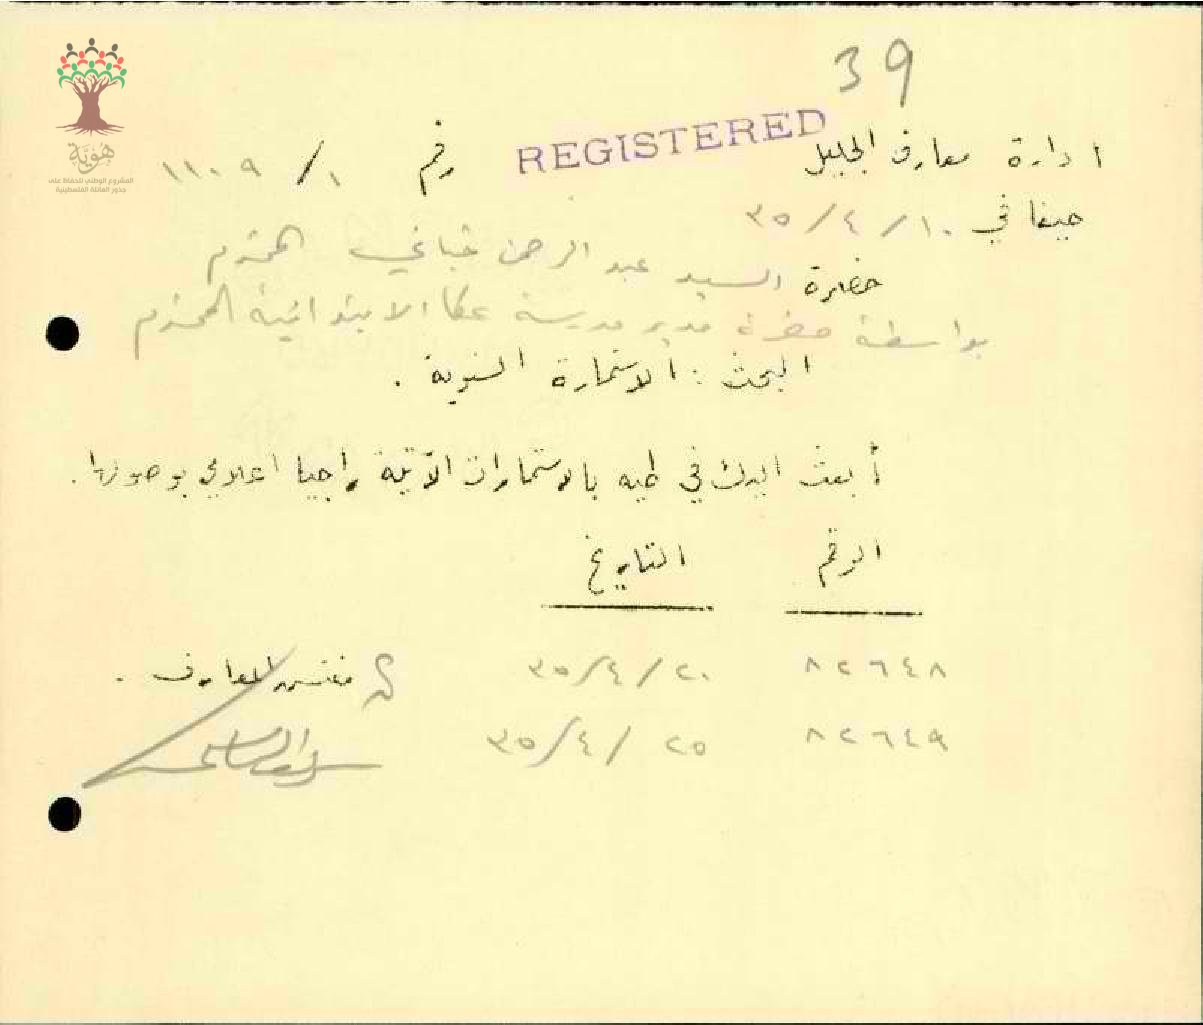 39
هوية
المشروع الوطني للحفاظ على
جذور العائلة الفلسطينية
ادارة معارف الجليل REGISTERED رقم ١/ ١١٠٩
حيفا في ١٠/٤/٣٥
حضرة السيد عبد الرحمن المحترم
بواسطة حضرة مدير مدرسة عكا الابتدائية المحترم
البحث : الاستمارة السنوية .
أبعث اليك في طيه بالاستمارات الآتية راجيا اعلامي بوصولها .
الرقم التاريخ
٨٢٦٤٨ ٢٠/٤/٣٥ مفتش المعارف .
٨٢٦٤٩ ٢٥/٤/٣٥